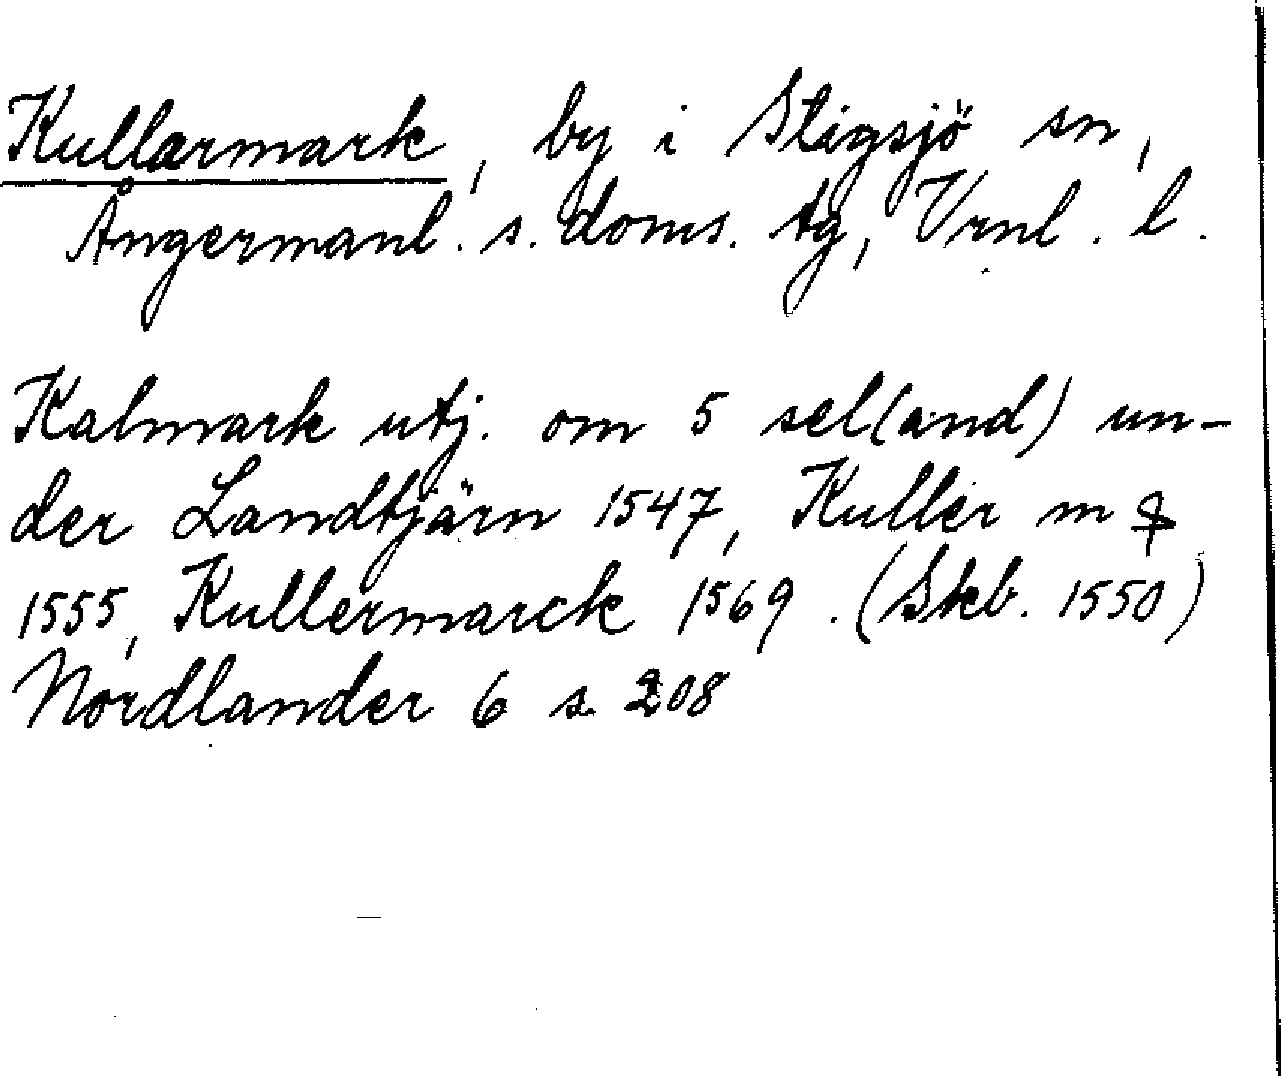 Kullarmark, by i Stigsjö sn,
Ångermanl. s. doms. tg, Vrnl. l.
Kalmark utj. om 5 sel(and) un-
der Landtjärn 1547, Kuller m
1555, Kullermarck 1569. (Skb. 1550)
Nordlander 6 s. 208